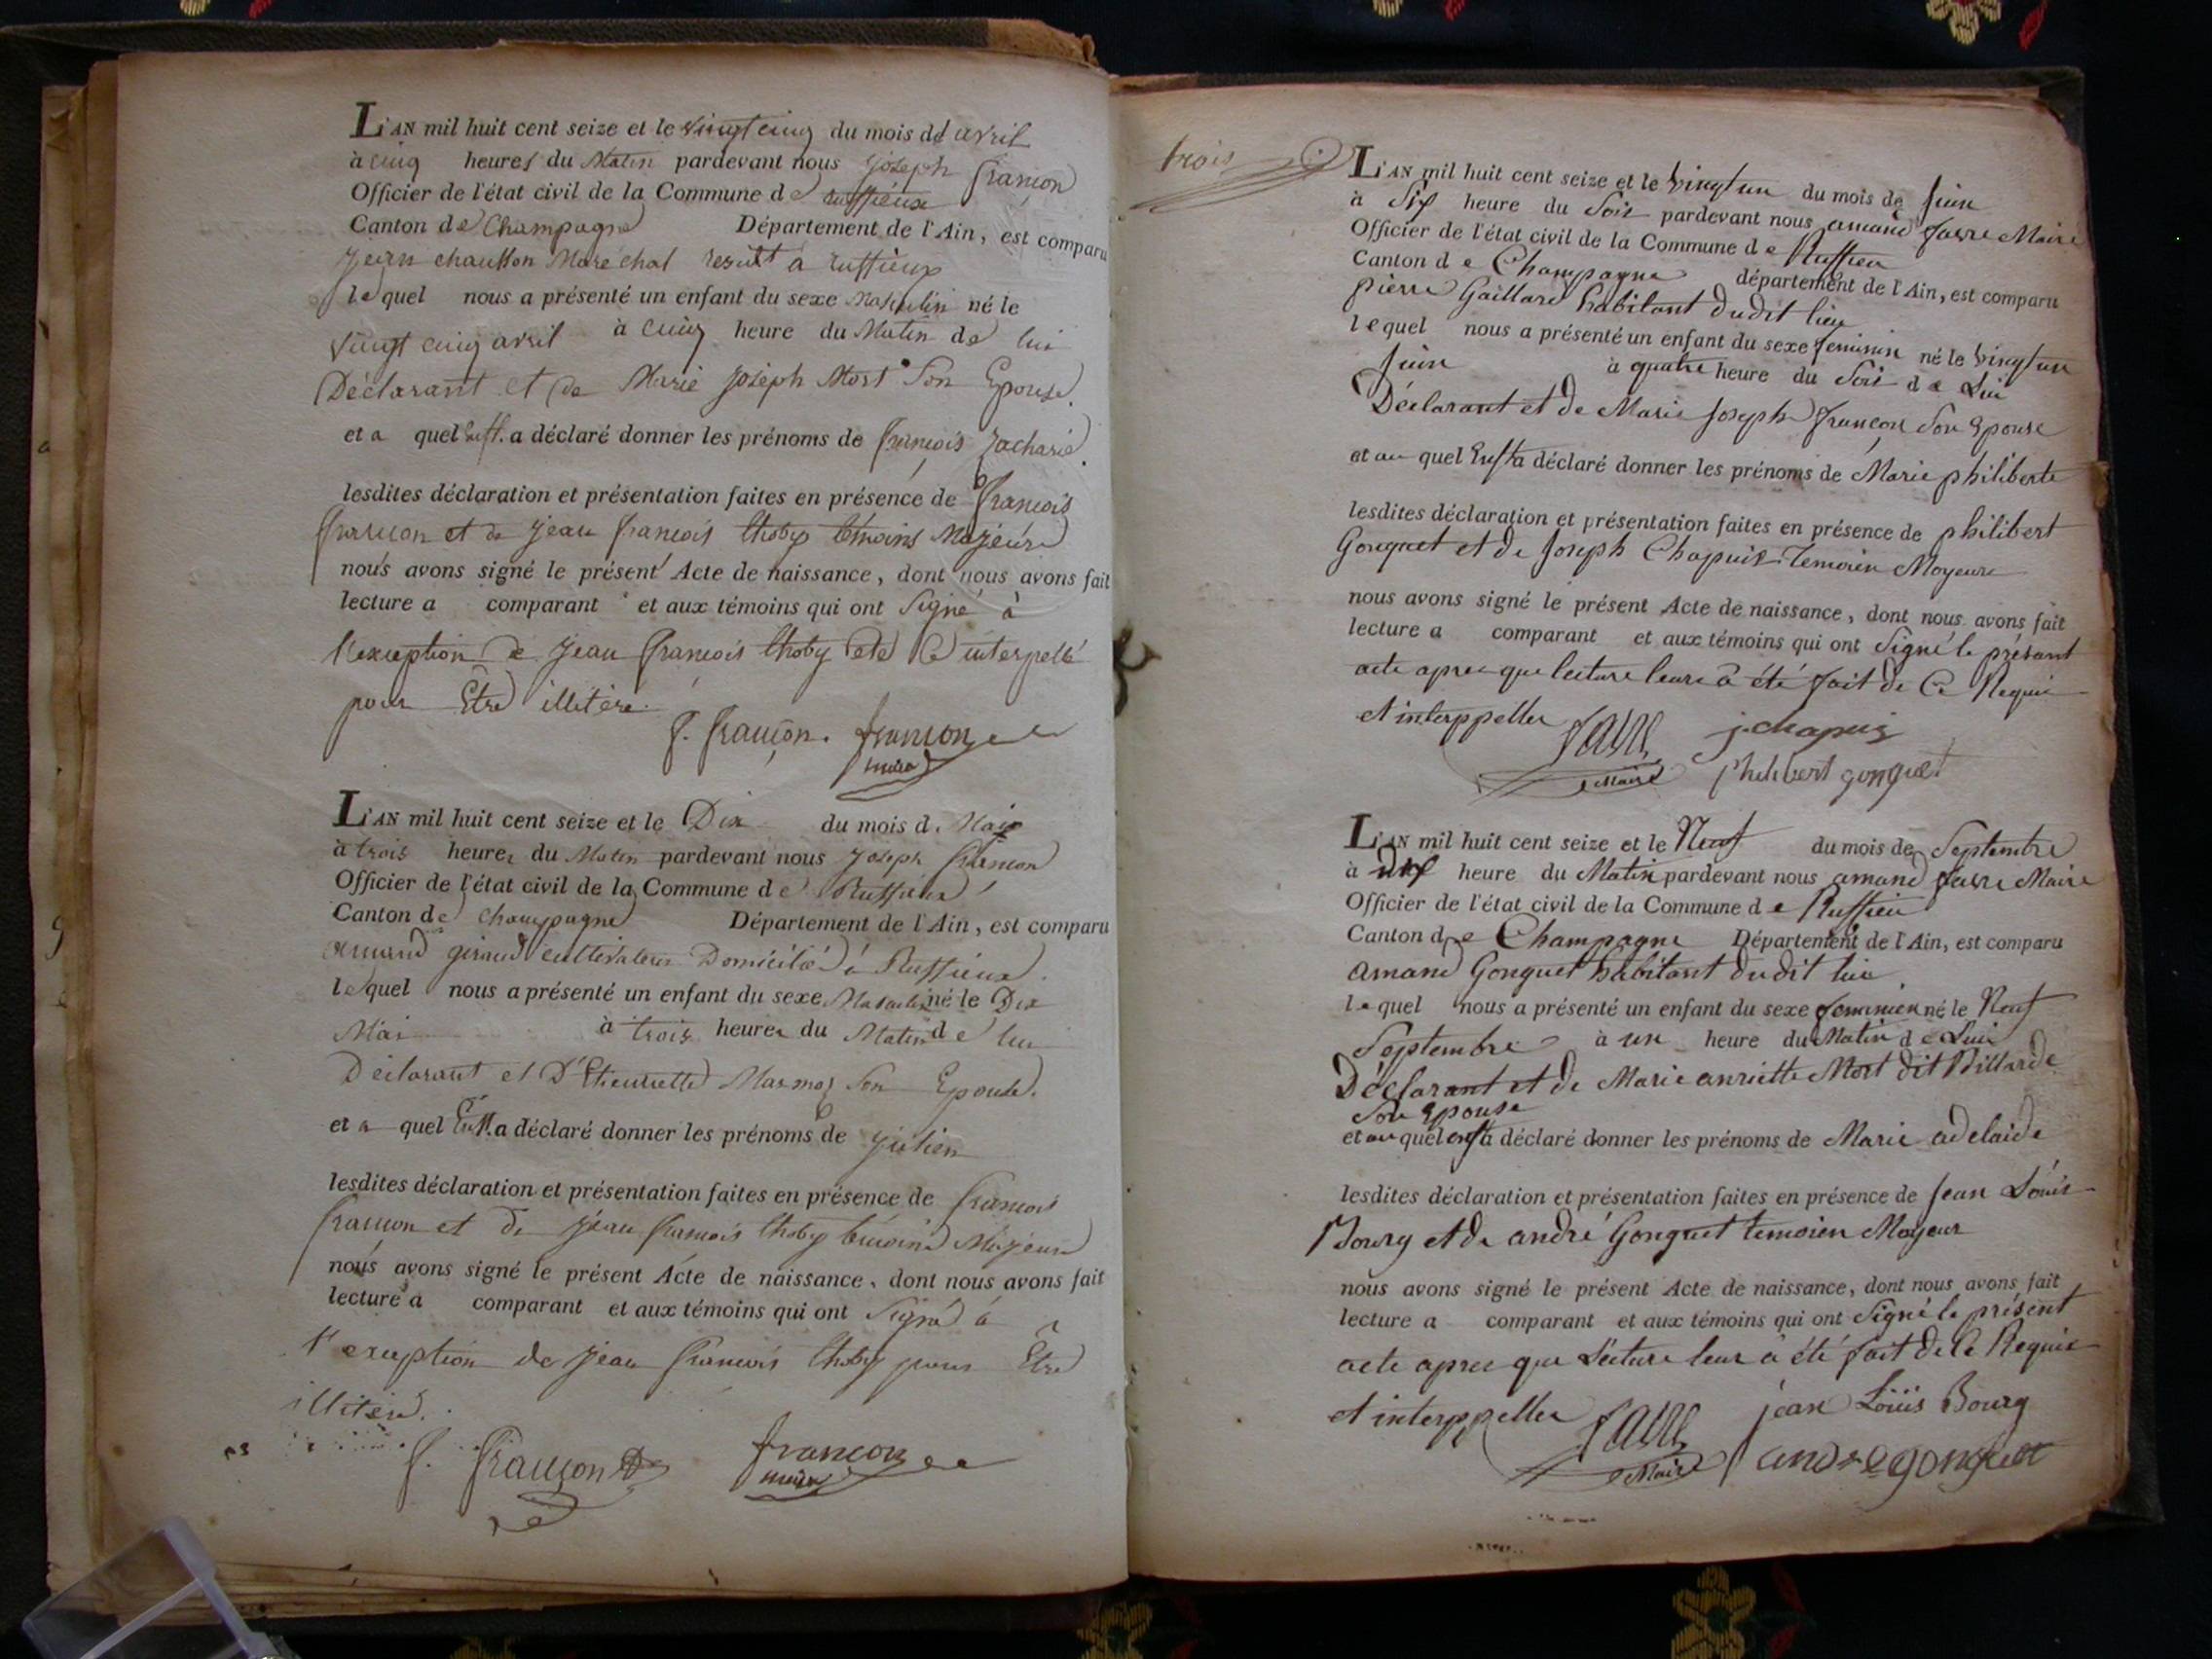 L'AN mil huit cent seize et le vingt cinq du mois de avril
à cinq heures du Matin pardevant nous joseph françon
Officier de l'état civil de la Commune de ruffieux
Canton de Champagne Département de l'Ain, est comparu
jean chausson Maréchal à ruffieux
lequel nous a présenté un enfant du sexe Masculin né le
vingt cinq avril à cinq heure du Matin de lui
Déclarant et de Marie joseph Mort Son Epouse
et a quel a déclaré donner les prénoms de françois zacharie
lesdites déclaration et présentation faites en présence de françois
françon et de jean françois thoby témoins Majeurs
nous avons signé le présent Acte de naissance, dont nous avons fait
lecture a comparant et aux témoins qui ont Signé à
l'exception de jean françois thoby de ce interpellé
pour Etre illitéré.
f. françon. françon
maire
L'AN mil huit cent seize et le Dix du mois d. Mai
à trois heures du Matin pardevant nous joseph françon
Officier de l'état civil de la Commune de Ruffieux
Canton de Champagne Département de l'Ain, est comparu
Armand giraud cultivateur Domicilié à Ruffieux
lequel nous a présenté un enfant du sexe Masculin né le Dix
Mai à trois heures du Matin de lui
Déclarant et D'Etiennette Marmoz Son Epouse.
et a quel a déclaré donner les prénoms de julien
lesdites déclaration et présentation faites en présence de françois
françon et de jean françois thoby témoins Majeurs
nous avons signé le présent Acte de naissance, dont nous avons fait
lecture a comparant et aux témoins qui ont Signé à
l'exception de jean françois thoby pour Etre
illitéré.
f. françon françon
maire
trois
L'AN mil huit cent seize et le vingt un du mois de juin
à Six heure du Soir pardevant nous amand favre Maire
Officier de l'état civil de la Commune de Ruffieu
Canton de Champagne département de l'Ain, est comparu
pierre Gaillard habitant dudit lieu
lequel nous a présenté un enfant du sexe feminin né le vingt un
juin à quatre heure du Soir de Lui
Déclarant et de Marie joseph françon Son Epouse
et au quel Enft a déclaré donner les prénoms de Marie philiberte
lesdites déclaration et présentation faites en présence de philibert
Gonguet et de joseph Chapuis Temoien Mayeurs
nous avons signé le présent Acte de naissance, dont nous avons fait
lecture a comparant et aux témoins qui ont Signé le présant
acte apres que lecture leurs a été fait de Ce Requis
et interppeller favre j. chapuis
Maire philibert gonguet
L'AN mil huit cent seize et le Neuf du mois de Septembre
à heure du Matin pardevant nous amand favre Maire
Officier de l'état civil de la Commune de Ruffieu
Canton de Champagne Département de l'Ain, est comparu
amand Gonguet habitant dudit lieu
lequel nous a présenté un enfant du sexe femminien né le Neuf
Septembre à un heure du Matin de Lui
Déclarant et de Marie anriette Mort dit Billarde
Son Epouse
et au quel enft a déclaré donner les prénoms de Marie adelaide
lesdites déclaration et présentation faites en présence de jean Louis
Bourg et de andré Gonguet temoien Mayeur
nous avons signé le présent Acte de naissance, dont nous avons fait
lecture a comparant et aux témoins qui ont Signé le présent
acte apres que Lecture leur a été fait de Ce Requis
et interppeller favre jean Louis Bourg
Maire andre gonguet